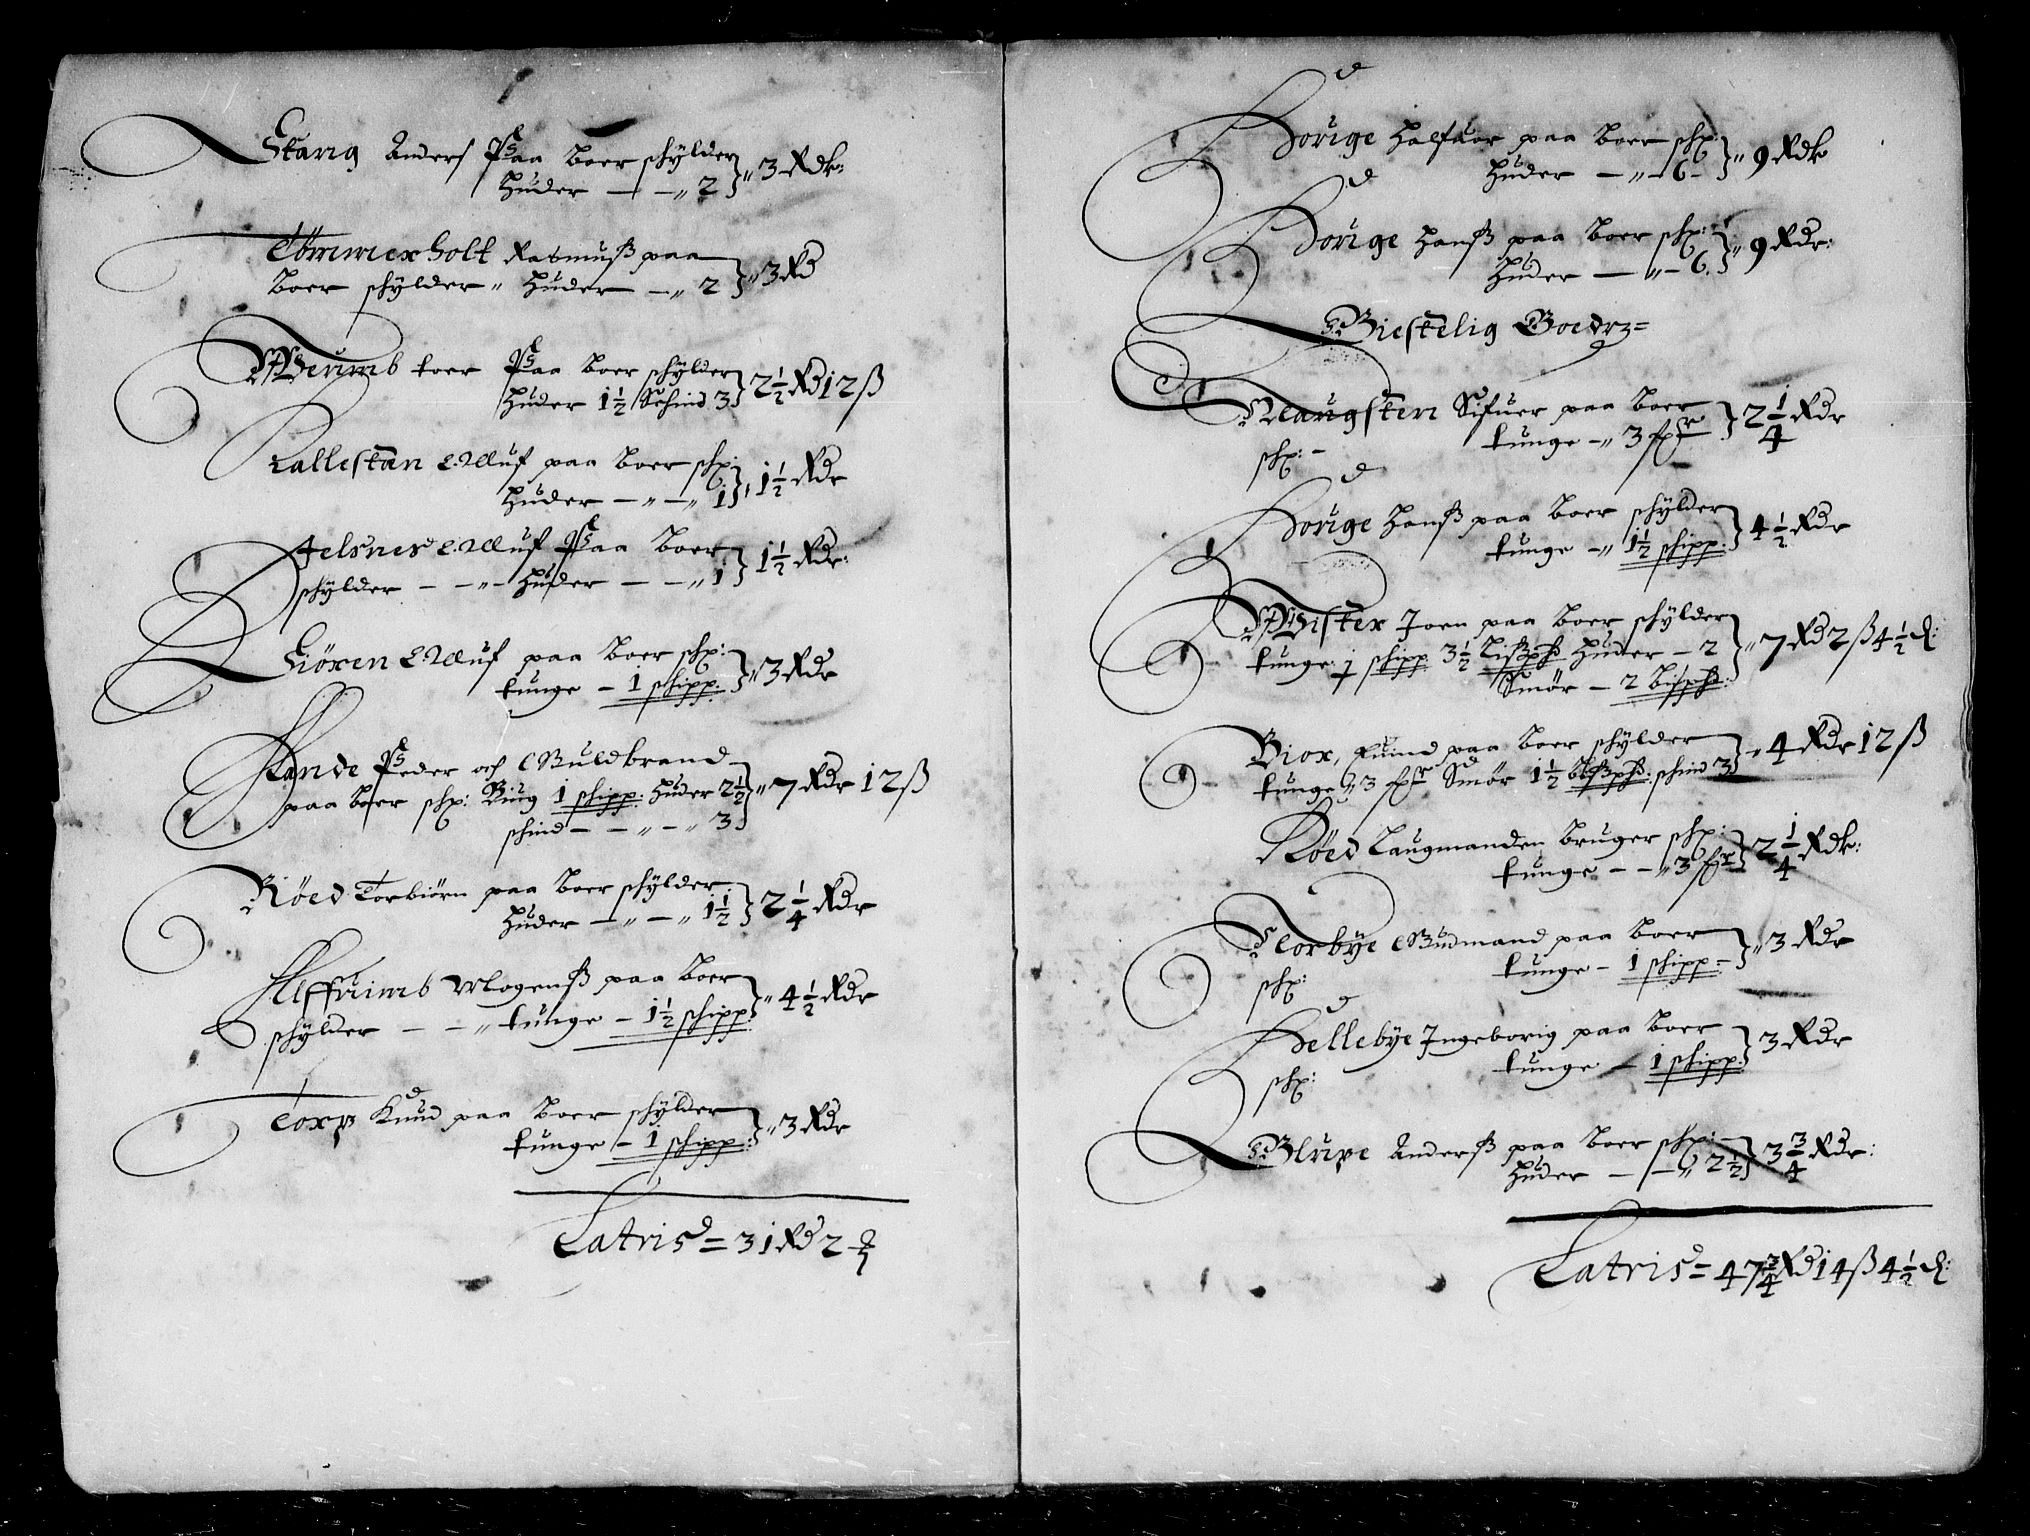 Stang Anders Paa boer schylder
huder — — „ 2 } „ 3 Rdr:
Tömmerholt Rasmuß paa
boer schylder „ huder — „ 2 } „ 3 Rd
Werimb toer Paa boer schylder
huder 1½ Schind 3 } 2½ Rd 12 ß
Kallestan Olluf paa boer schy:
huder — „ — „ 1 } „ 1½ Rdr
Jelsnes Olluf Paa boer
schylder — — „ — huder — — „ 1 } 1½ Rdr:
Giören Olluf paa boer schy:
tunge — 1 schipp: } „ 3 Rdr
Sande Peder och Guldbrand
paa boer schy: Biug 1 schipp: huder 2½
schind — — „ — „ 3 } „ 7 Rdr 12 ß
Röed Torbiörn paa boer schylder
huder — „ — „ 1½ } 2¼ Rdr
Mogenß paa boer
schylder — — „ tunge — 1½ schipp } „ 4½ Rdr
Torp Knud paa boer schylder
tunge — 1 schipp: } „ 3 Rdr
Latris = 31 Rd 2
Borige Halfuor paa boer schy:
huder — „ — 6 — } „ 9 Rdr
Borige Hanß paa boer schy:
huder — „ — 6 } „ 9 Rdr:
Giestelig Goedz =
Haugsten Sifuer paa boer
schy: — tunge — „ 3 fr } 2¼ Rdr
Borige Hanß paa boer schylder
tunge — „ 1½ schipp: } 4½ Rdr
Wister Joen paa boer schylder
tunge 1 schipp 3½ Lißpd huder — 2
Smör — 2 Lißpd: } „ 7 Rd 2 ß 4½ d:
Biör, Euind paa boer schylder
tunge „ 3 fr Smör 1½ Lißpd: schind 3 } „ 4 Rdr 12 ß
Röed Laugmanden bruger schy:
tunge — — „ 3 fr } 2¼ Rdr:
Torbye Gudmand paa boer
schy: tunge — 1 schipp — } „ 3 Rdr
Hellebye Ingeborig paa boer
schy: tunge — 1 schipp: } 3 Rdr
Glupe Anderß paa boer schy: —
huder — — „ 2½ } 3¾ Rdr:
Latris = 47¾ Rd 14 ß 4½ d: